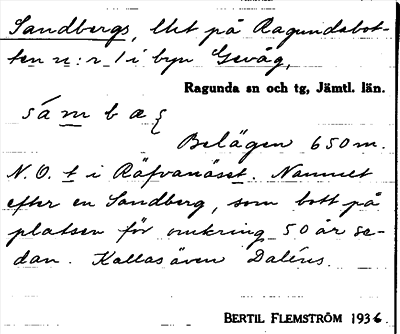 Sandbergs, lht på Ragundabot-
ten n:r 1 i byn Gevåg,
Ragunda sn och tg, Jämtl. län.
sámbæ
Belägen 650 m.
N.O. t i Räfvanäset. Namnet
efter en Sandberg, som bott på
platsen för omkring 50 år se-
dan. Kallas även Daléns.
BERTIL FLEMSTRÖM 1936.